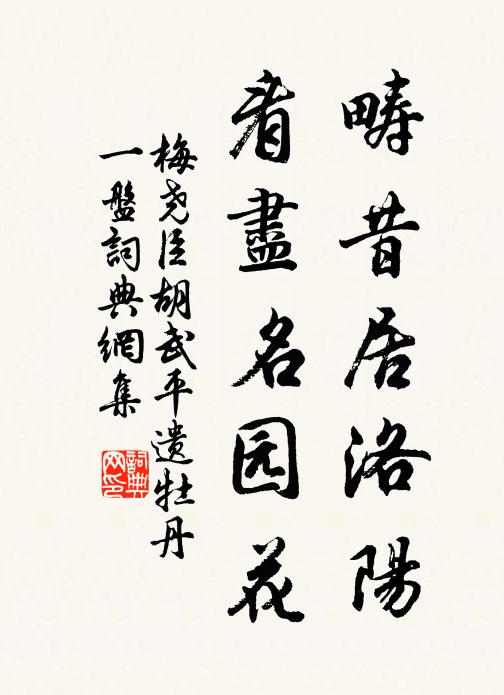 疇昔居洛陽
看盡名园花
梅尧臣胡武平遗牡丹
一盤詞典網集
詞典
网印